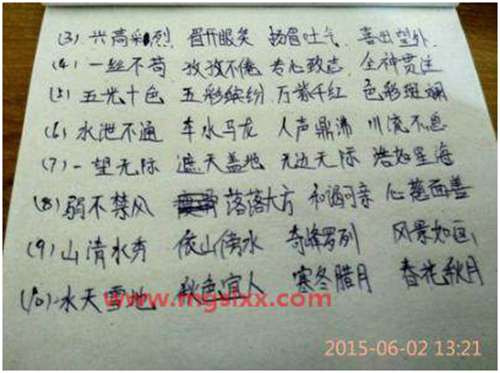 (3) 兴高彩烈 眉开眼笑 扬眉吐气 喜出望外
(4) 一丝不苟 孜孜不倦 专心致志 全神贯注
(5) 五光十色 五彩缤纷 万紫千红 色彩斑斓
(6) 水泄不通 车水马龙 人声鼎沸 川流不息
(7) 一望无际 遮天盖地 无边无际 浩如星海
(8) 弱不禁风 落落大方 和谒可亲 心慈面善
(9) 山清水秀 依山傍水 奇峰罗列 风景如画
(10) 水天雪地 秋色宜人 寒冬腊月 春花秋月
www.mgsixx.com
2015-06-02 13:21